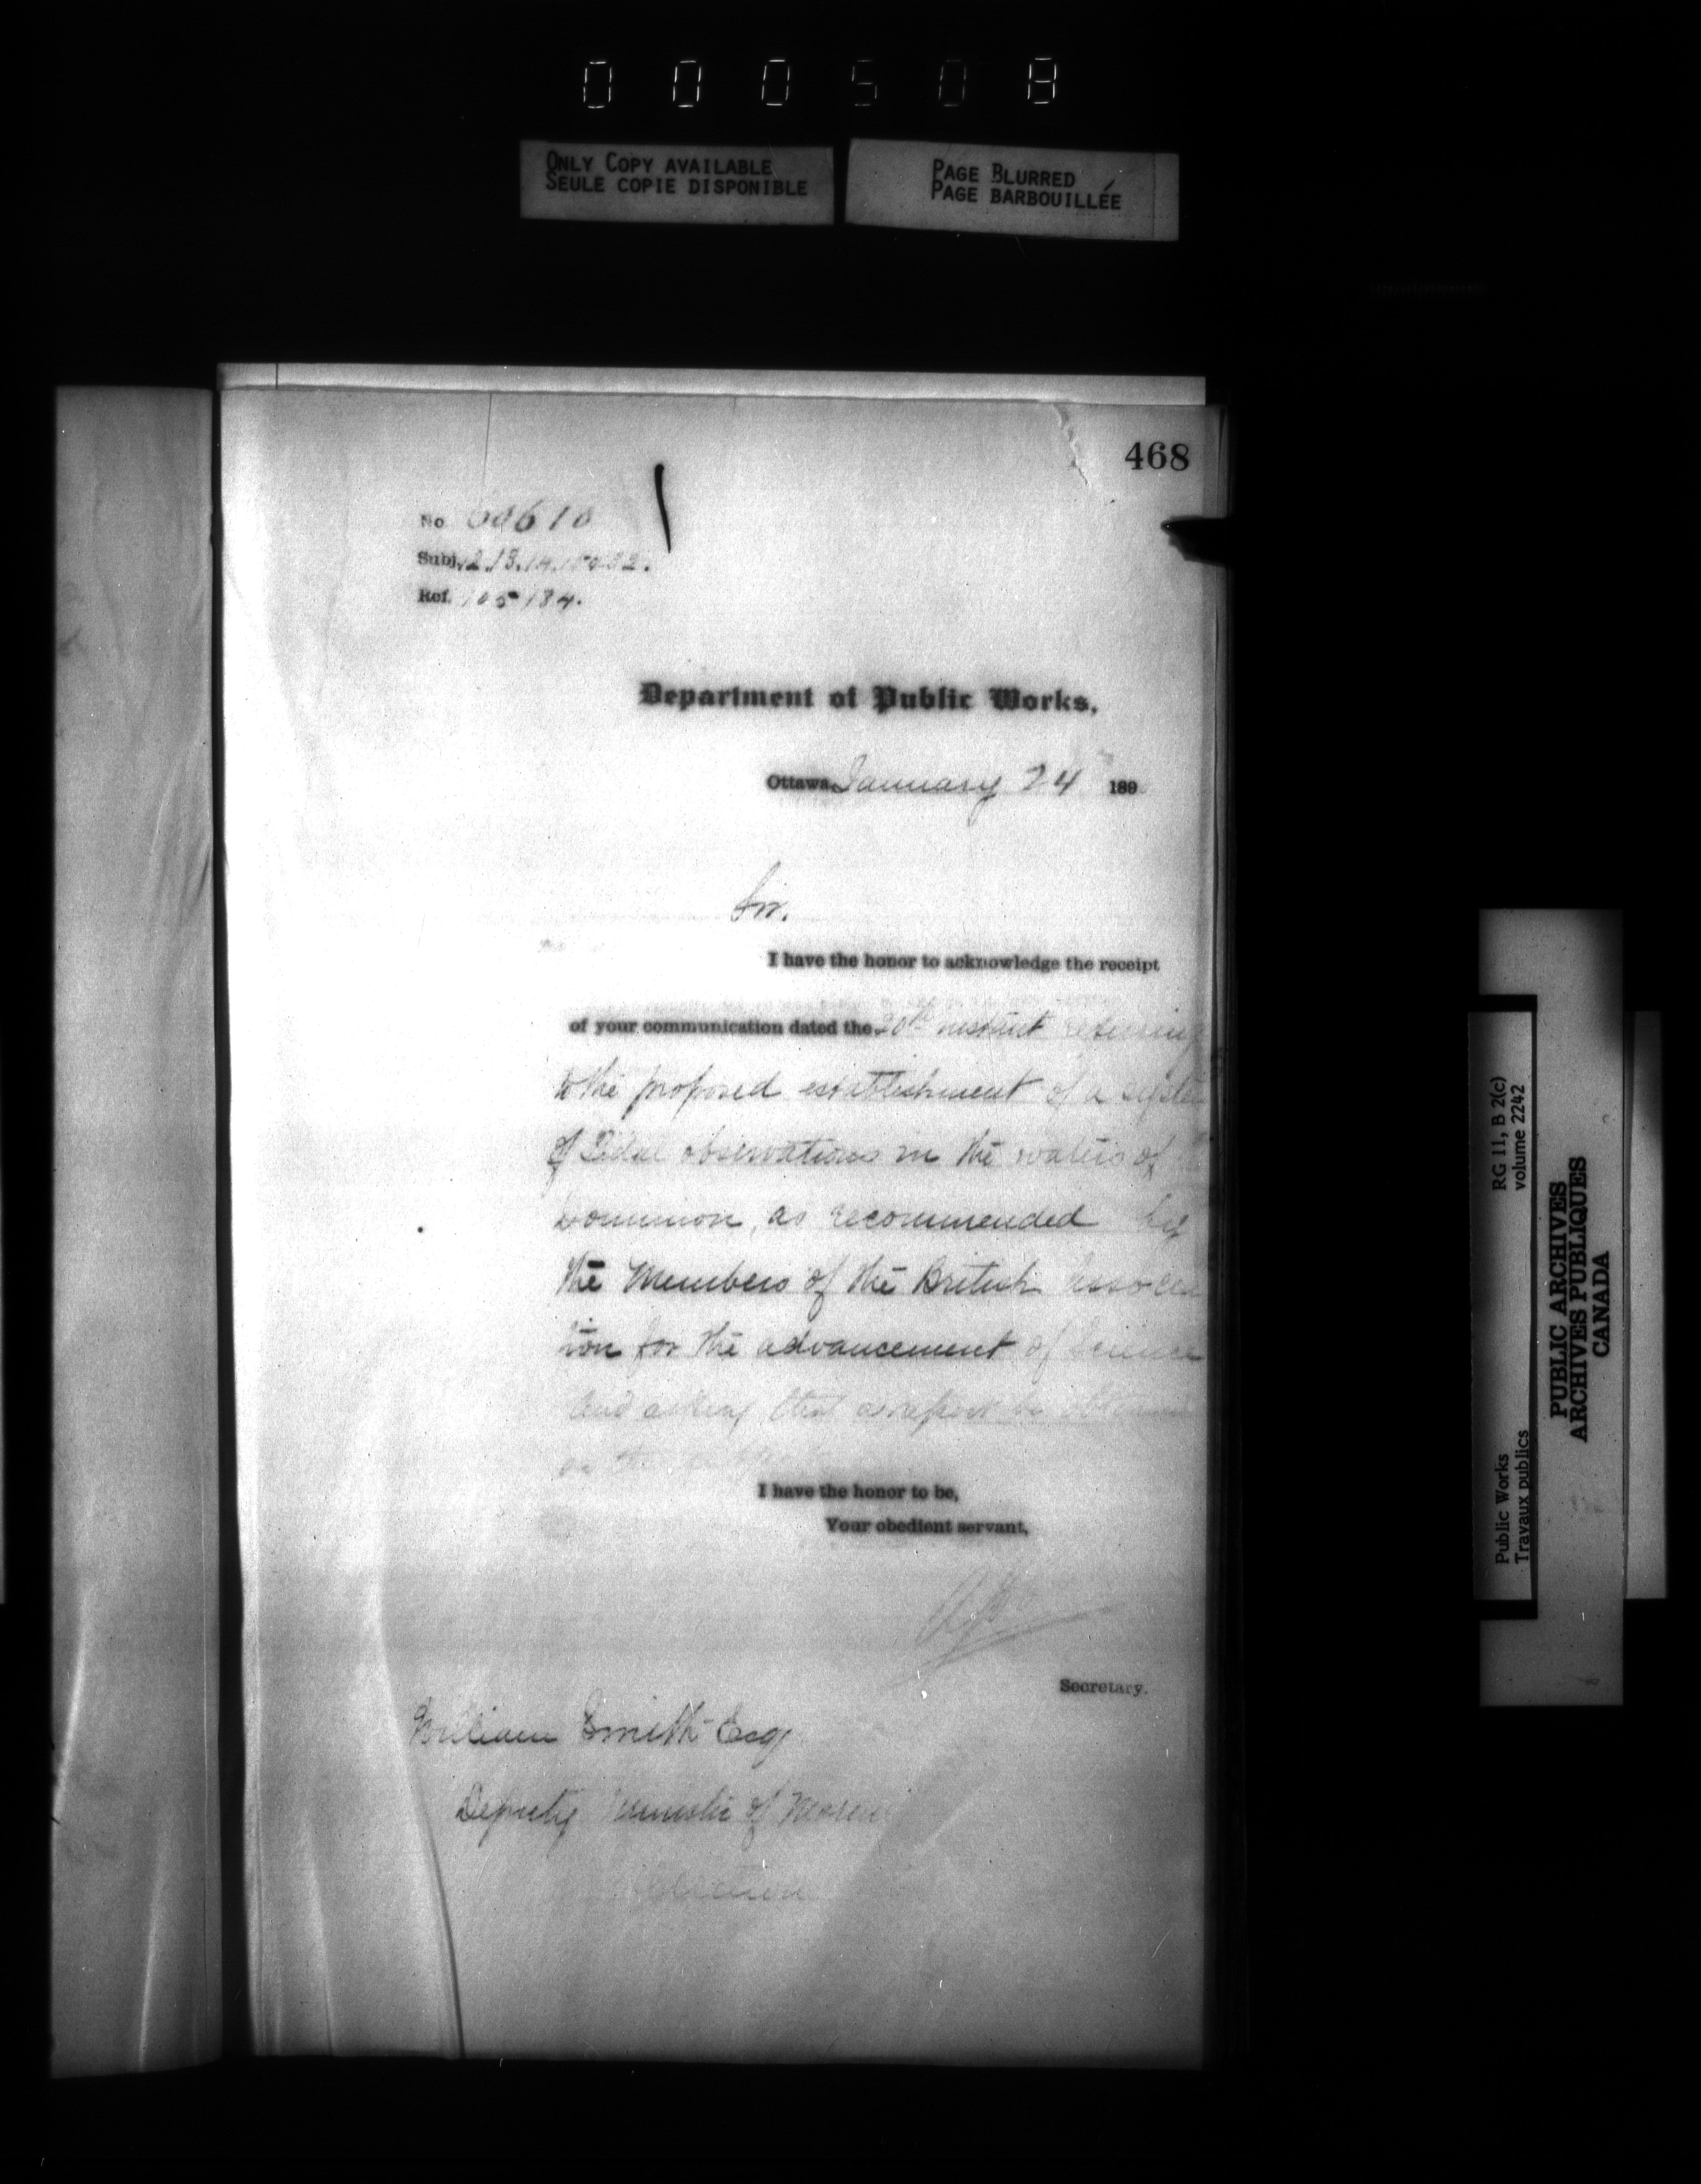 000508
ONLY COPY AVAILABLE
SEULE COPIE DISPONIBLE
PAGE BLURRED
PAGE BARBOUILLÉE
468
No. 60610
Subj.
Ref. 105134.
Department of Public Works,
Ottawa, January 24 189
Sir.
I have the honor to acknowledge the receipt
of your communication dated the 20th instant referring
to the proposed establishment of a system
of Tidal observations in the waters of
Dominion, as recommended by
the Members of the British Associa
tion for the advancement of Science
and asking that a report be obtained
on the
I have the honor to be,
Your obedient servant,
Secretary.
William Smith Esq
Deputy Minister of Marine
RG 11, B 2(c)
volume 2242
Public Works
Travaux publics
PUBLIC ARCHIVES
ARCHIVES PUBLIQUES
CANADA